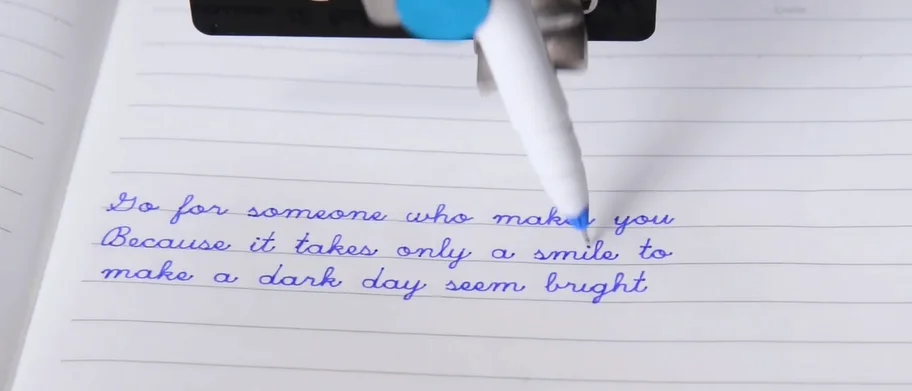 Go for someone who makes you
Because it takes only a smile to
make a dark day seem bright